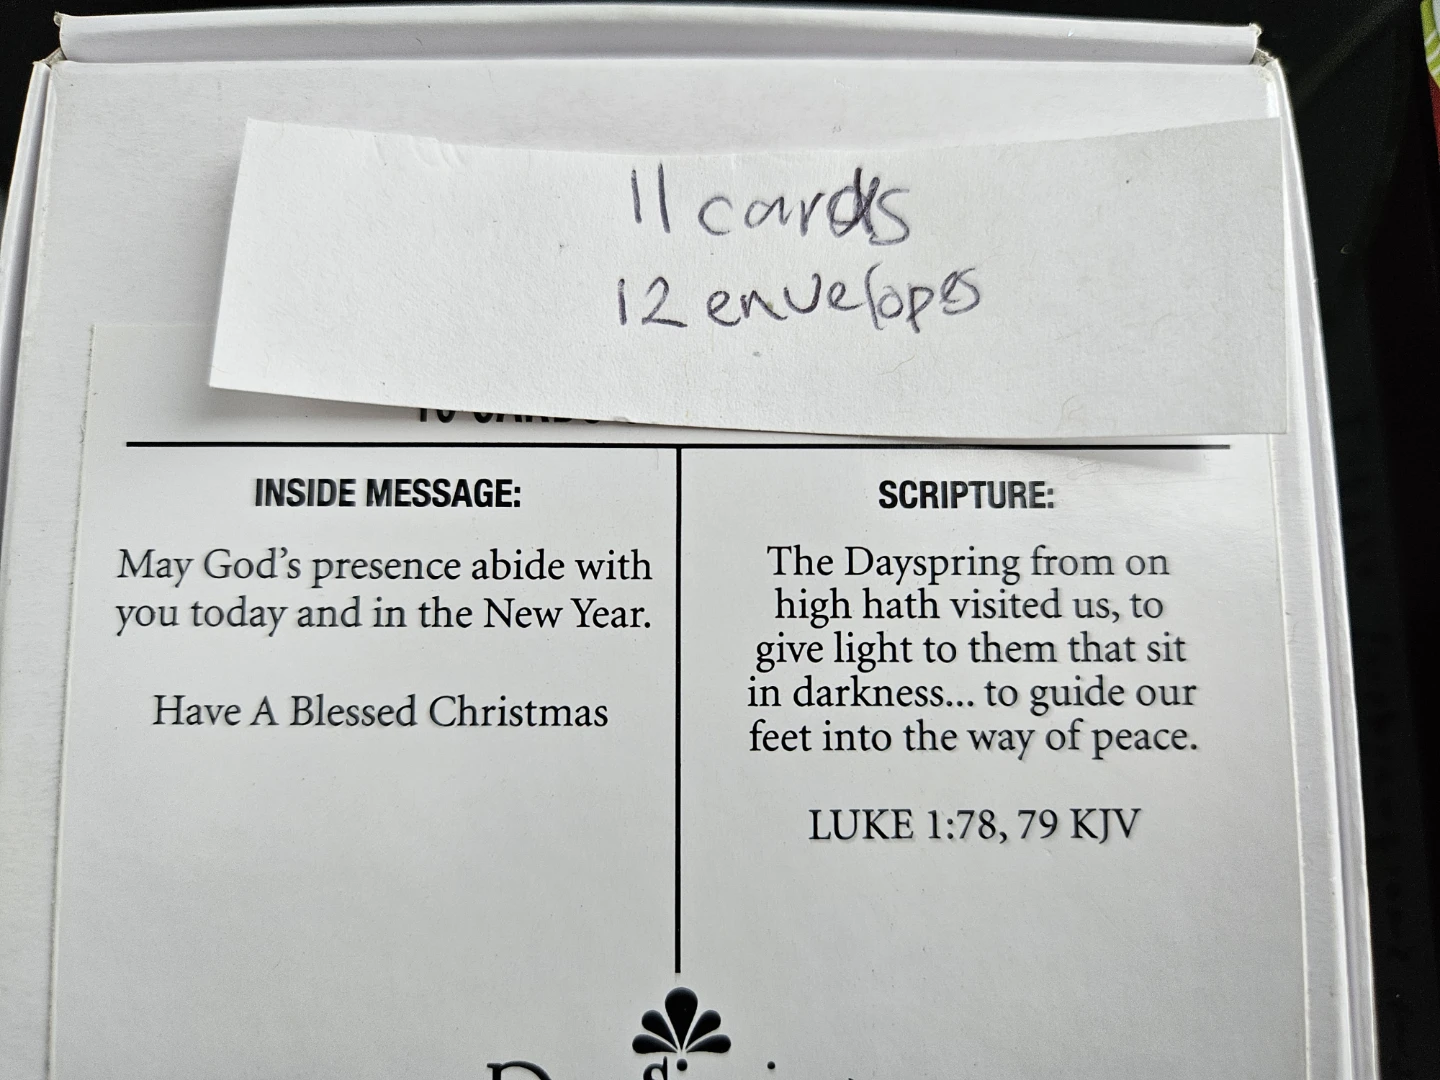 11 cards
12 envelopes
INSIDE MESSAGE:
May God's presence abide with
you today and in the New Year.
Have A Blessed Christmas
SCRIPTURE:
The Dayspring from on
high hath visited us, to
give light to them that sit
in darkness... to guide our
feet into the way of peace.
LUKE 1:78, 79 KJV